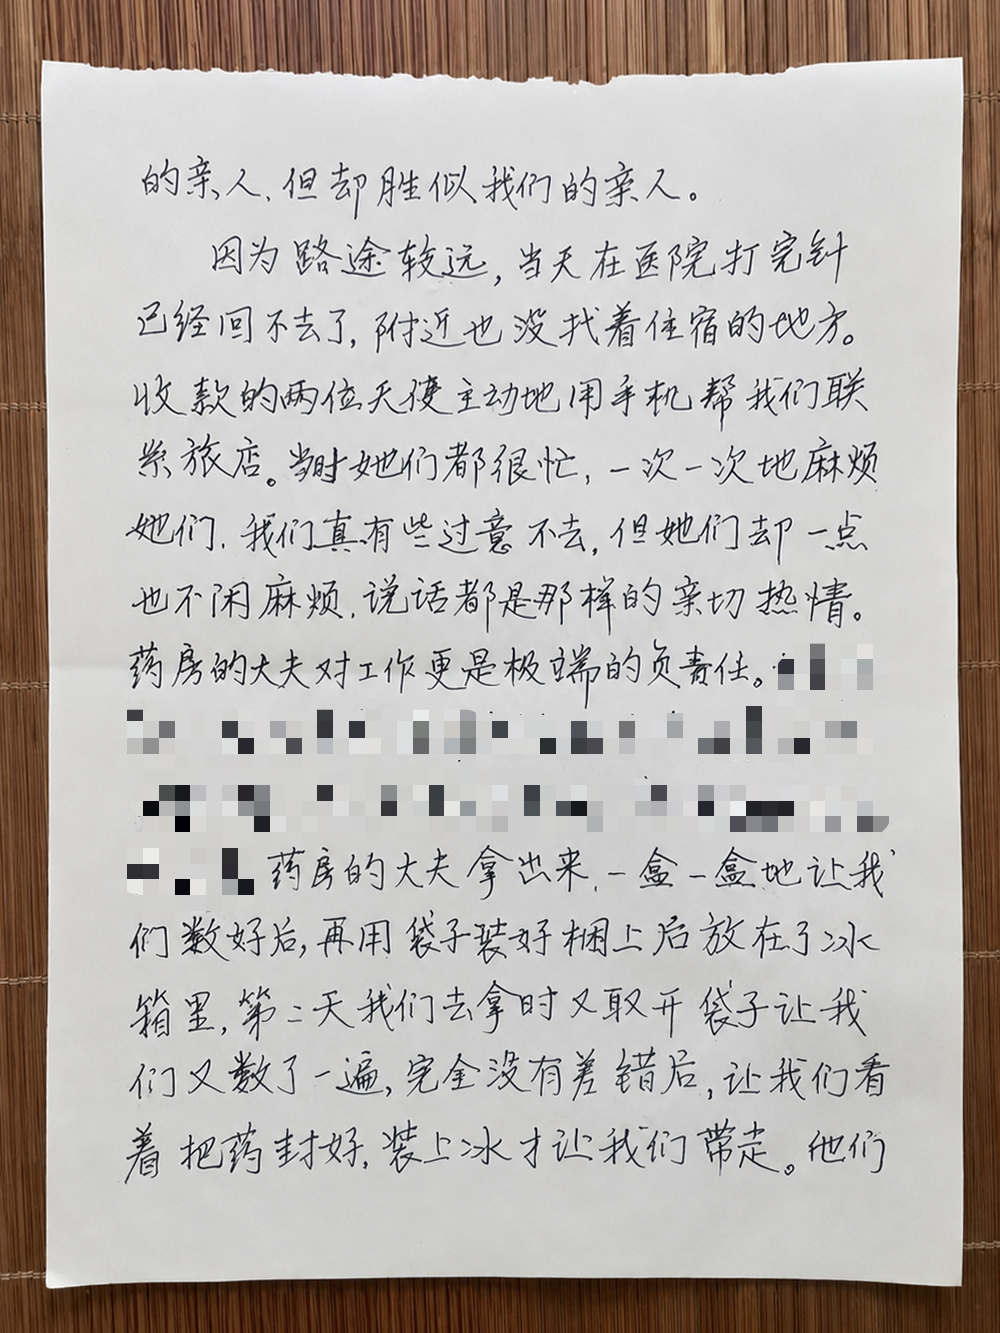 的亲人、但却胜似我们的亲人。
因为路途较远，当天在医院打完针
已经回不去了，附近也没找着住宿的地方。
收款的两位天使主动地用手机帮我们联
系旅店。当时她们都很忙，一次一次地麻烦
她们，我们真有些过意不去，但她们却一点
也不闲麻烦，说话都是那样的亲切热情。
药房的大夫对工作更是极端的负责任。
药房的大夫拿出来，一盒一盒地让我
们数好后，再用袋子装好捆上后放在了冰
箱里，第二天我们去拿时又取开袋子让我
们又数了一遍，完全没有差错后，让我们看
着把药封好，装上冰才让我们带走。他们